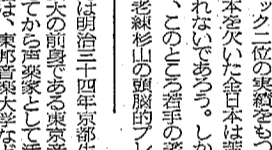 ック二位の実績をもつ
本を欠いた全日本は苦
れないであろう。しか
、このところ若手の
老練杉山の頭脳的プレ
は明治三十四年京都生
大の前身である東京音
てから声楽家として活
は、東邦音楽大学など